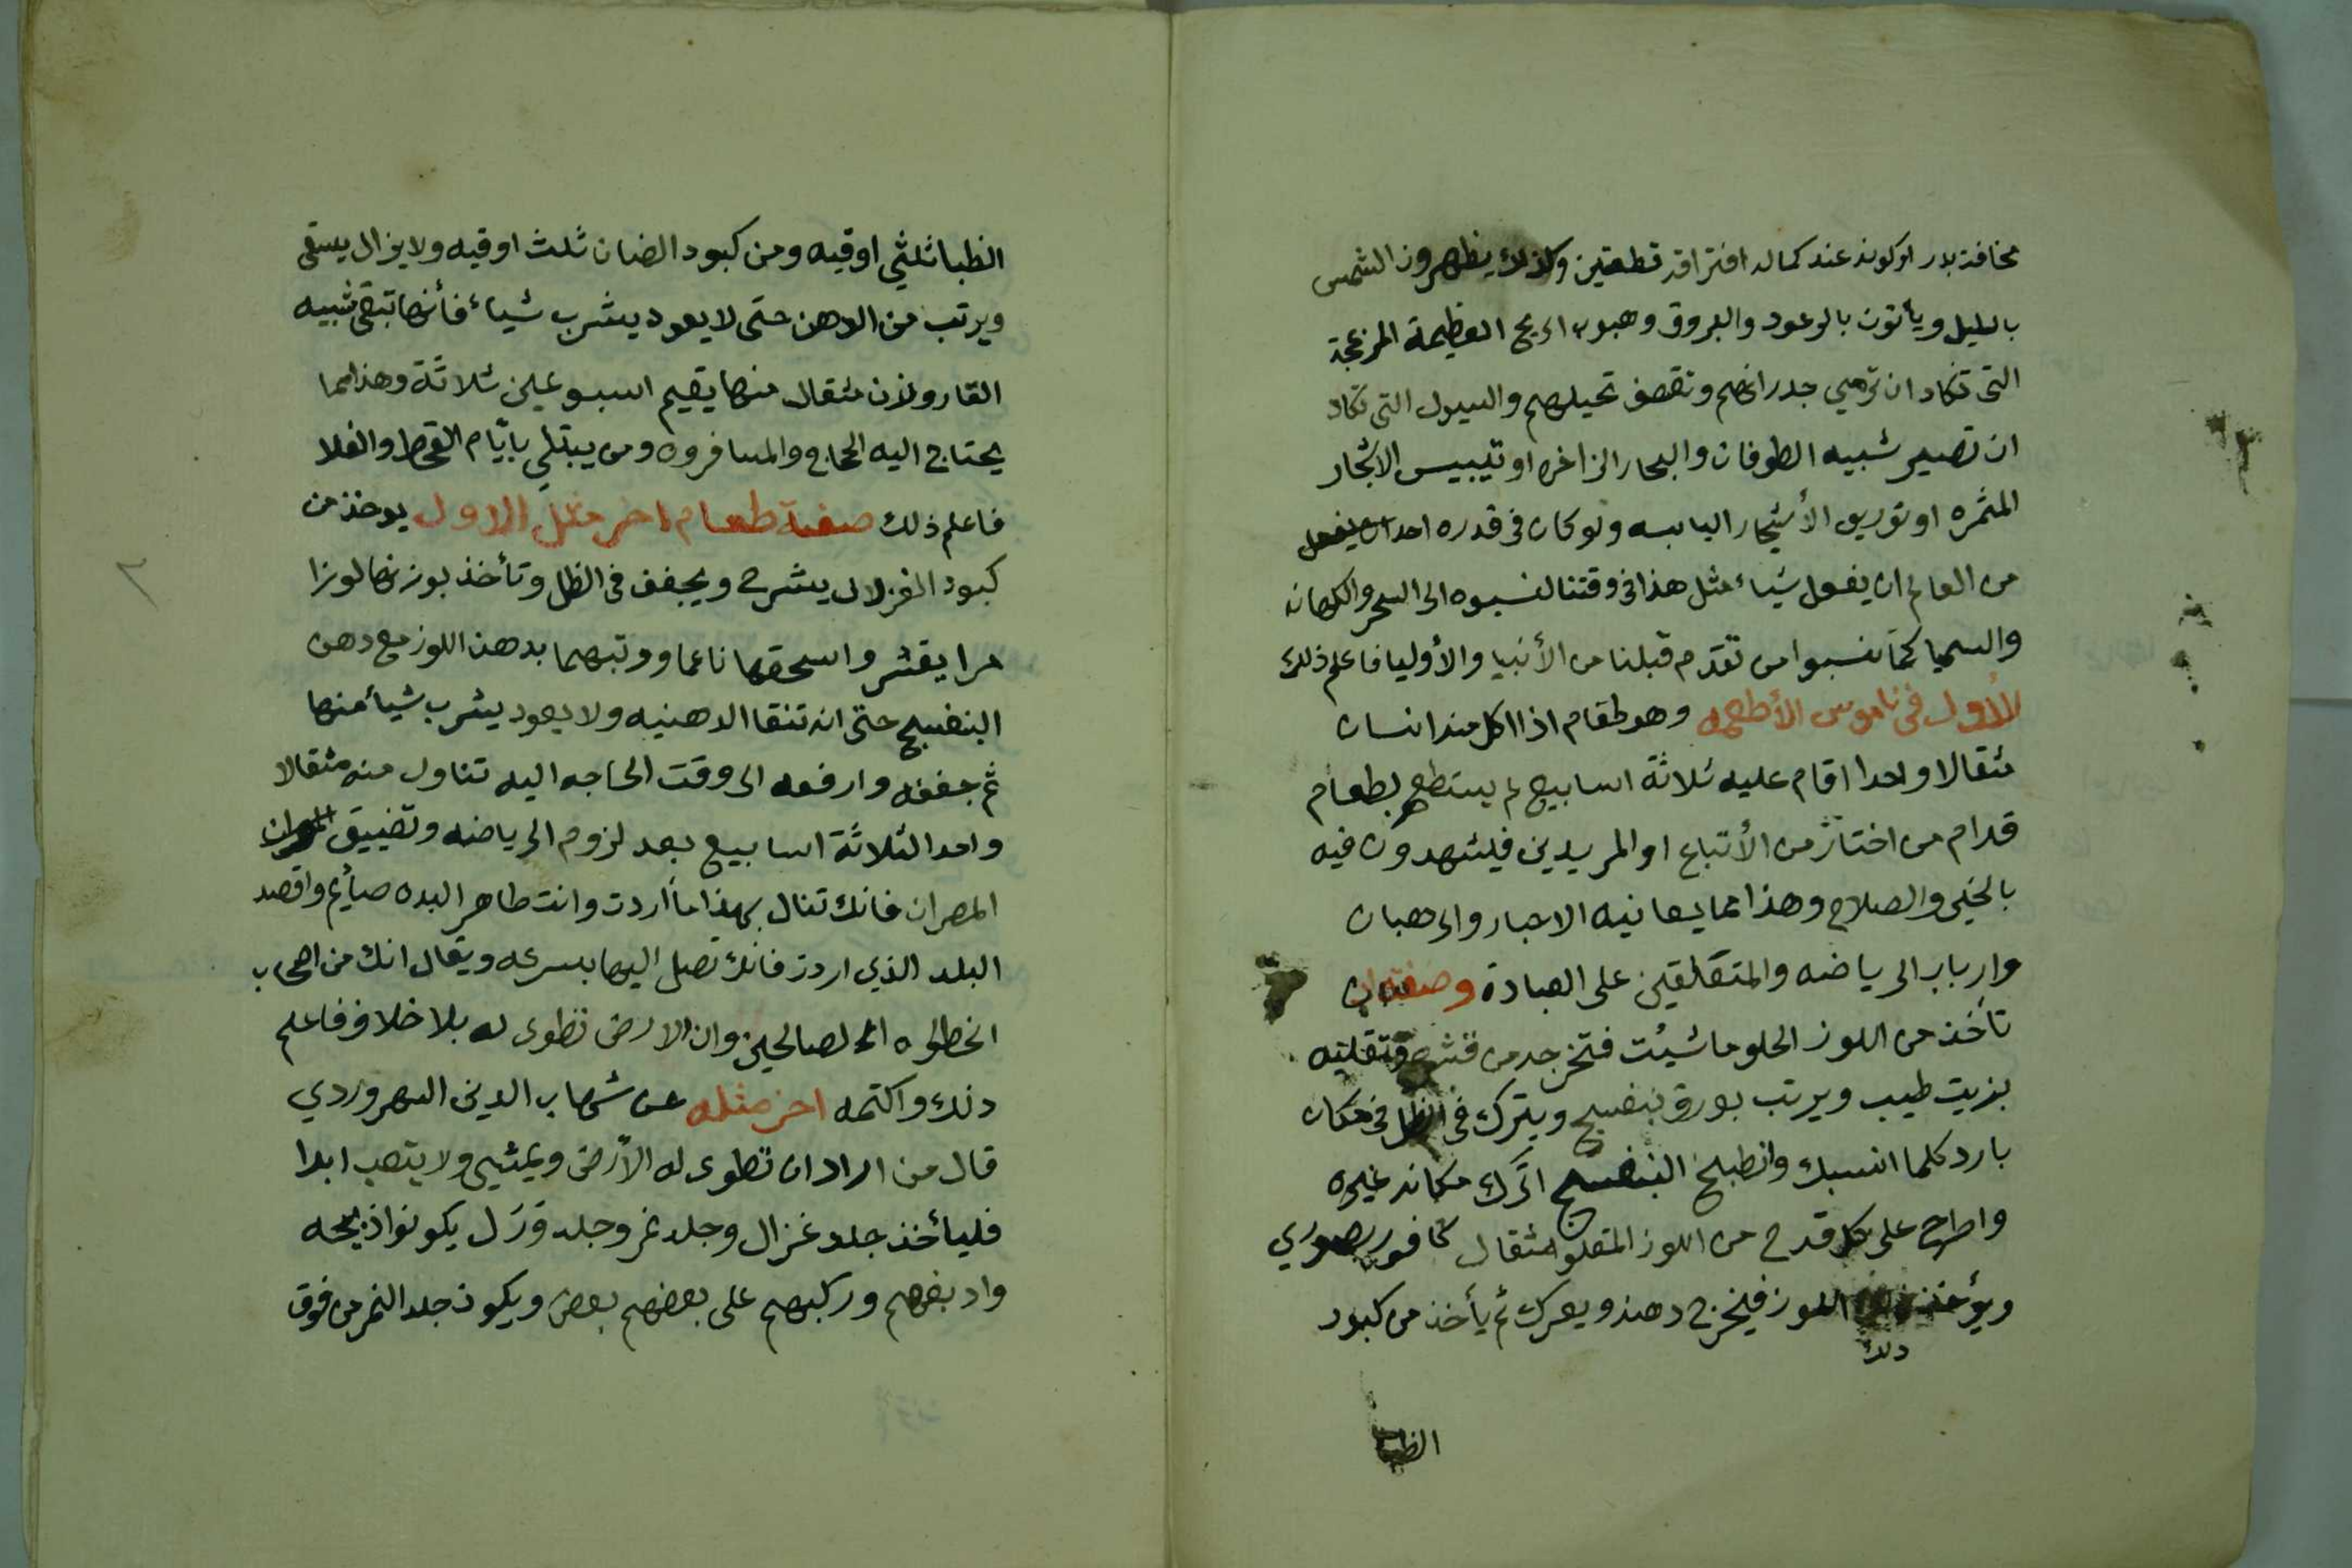 مخافة بدر او كونه عند كماله افتراقه قطعتين وكذلك يظهرون الشمس
بالليل ويأتون بالرعود والبروق وهبوب الريح العظيمة المزعجة
التى تكاد ان ترمي جدرانهم وتقصف نخيلهم والسيول التى تكاد
ان تصير شبيه الطوفان والبحار الزاخره او تيبيس الاشجار
المثمره او توريق الأشجار اليابسه ولو كان فى قدره احدا ان يفعل
من العالم ان يفعل شياء مثل هذا فى وقتنا لنسبوه الى السحر والكهانه
والسميا كما نسبوا من تقدم قبلنا من الأنبيا والأوليا فاعلم ذلك
الأول فى ناموس الأطعمه وهو طعام اذا اكل منه انسان
مثقالا واحدا اقام عليه ثلاثة اسابيع لم يستطع بطعام
قدام من اختار من الأتباع او المريدين فليشهدون فيه
بالخير والصلاح وهذا مما يعانيه الاحبار والرهبان
وارباب الرياضه والمتقلقين على العبادة وصفته ان
تأخذ من اللوز الحلو ما شيئت فتخرجه من قشره وتقليه
بزيت طيب ويرتب بورق بنفسج ويترك فى الظل فى مكان
بارد كلما انسبك وانطبخ البنفسج اترك مكانه غيره
واطرح على كل قدح من اللوز المقلو مثقال كافور
ويؤخذ اللوز فيخرج دهنه ويعرك ثم يأخذ من كبود
ذلك
الظبا
الظبا ثلثي اوقيه ومن كبود الضان ثلث اوقيه ولا يزال يسقى
ويرتب من الدهن حتى لا يعود يشرب شياء فأنها تبقى شبيه
القار ولان مثقال منها يقيم اسبوعين ثلاثة وهذا مما
يحتاج اليه الحجاج والمسافرون ومن يبتلي بايّام القحط والغلا
فاعلم ذلك صفة طعام اخر مثل الاول يوخذ من
كبود الغزلان يشرح ويجفف فى الظل وتأخذ بوزنها لوزا
مرا يقشر واسحقها ناعما ورتبهما بدهن اللوز مع دهن
البنفسج حتى انه تنقا الدهنيه ولا يعود يشرب شيأ منها
ثم جففه وارفعه الى وقت الحاجه اليه تناول منه مثقالا
واحدا لثلاثة اسابيع بعد لزوم الرياضه وتضييق
المصران فانك تنال بهذا ما أردت وانت طاهر البدن صأيم واقصد
البلد الذي اردت فانك تصل اليها بسرعه ويقال انك من اصحاب
الخطوه الصالحين وان الارض تطوى له بلا خلاف فاعلم
ذلك واكتمه اخر مثله عن شهاب الدين السهروردي
قال من اراد ان تطوى له الأرض ويمشي ولا يتعب ابدا
فليأخذ جلد غزال وجلد نمر وجلد ورَل يكونوا ذبيحه
وادبغهم وركبهم على بعضهم بعض ويكون جلد النمر من فوق